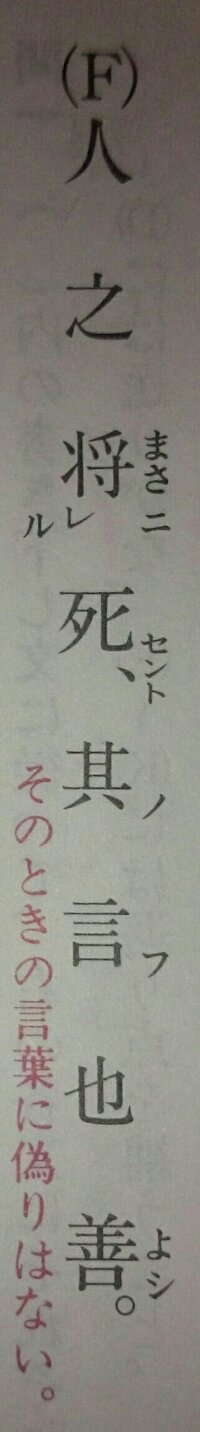 (F)人之将死、其言也善。
まさニ
セント
ノ
フ
よシ
レ
ル
そのときの言葉に偽りはない。